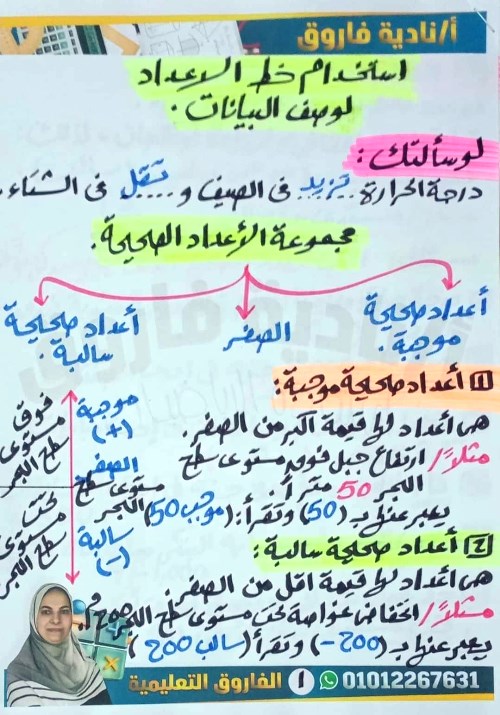 أ/نادية فاروق
استخدام خط الاعداد
لوصف البيانات.
لو سألتك:
درجة الحرارة ..تزيد.. فى الصيف و ..تقل.. فى الشتاء.
مجموعة الأعداد الصحيحة.
أعداد صحيحة موجبة.
الصفر
أعداد صحيحة سالبة.
1 أعداد صحيحة موجبة:
هى أعداد لها قيمة أكبر من الصفر.
مثلاً/ ارتفاع جبل فوق مستوى سطح
البحر 50 متراً.
يعبر عنها بـ (50) وتقرأ: (موجب 50)
موجبة
(+)
الصفر
مستوى سطح
البحر
سالبة
(-)
فوق
مستوى
سطح البحر
تحت
مستوى
سطح البحر
2 أعداد صحيحة سالبة:
هى أعداد لها قيمة اقل من الصفر.
مثلاً/ انخفاض غواصة تحت مستوى سطح البحر 200م
يعبر عنها بـ (200-) وتقرأ (سالب 200)
الفاروق التعليمية
1
01012267631